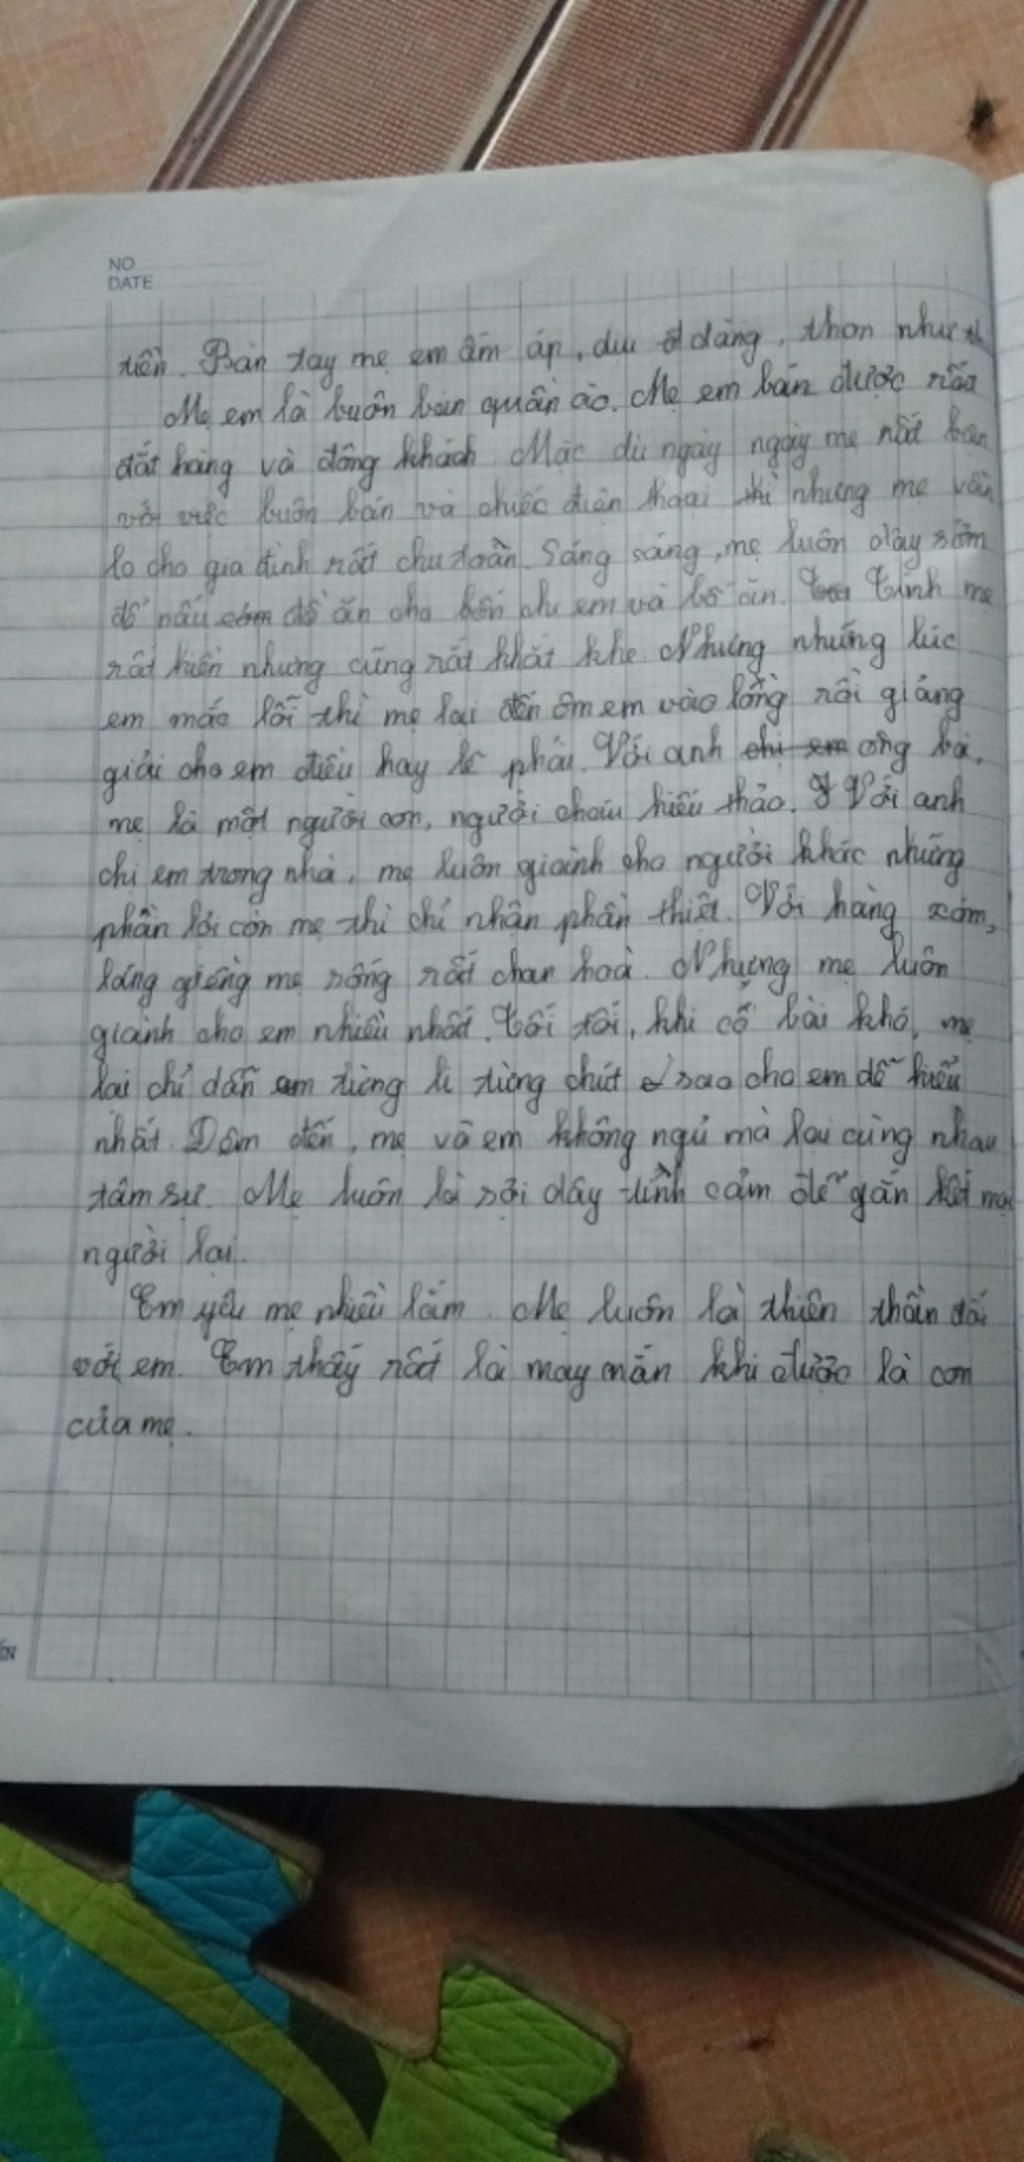 NO
DATE
tiên. Bàn tay mẹ em ấm áp, dịu dàng, thon như
Mẹ em là buôn bán quần áo. Mẹ em bán được rất
đắt hàng và đông khách. Mặc dù ngày ngày mẹ rất bận
với việc buôn bán và chiếc điện thoại thì nhưng mẹ vẫn
lo cho gia đình rất chu toàn. Sáng sáng, mẹ luôn dậy sớm
để nấu cơm đồ ăn cho bốn chị em và bố ăn. Tính mẹ
rất hiền nhưng cũng rất khắt khe. Nhưng những lúc
em mắc lỗi thì mẹ lại đến ôm em vào lòng rồi giảng
giải cho em điều hay lẽ phải. Với anh chị em ông bà,
mẹ là một người con, người cháu hiếu thảo. Với anh
chị em trong nhà, mẹ luôn giành cho người khác những
phần lời còn mẹ thì chỉ nhận phần thiệt. Với hàng xóm,
láng giềng mẹ sống rất chan hoà. Nhưng mẹ luôn
giành cho em nhiều nhất. Tối tối, khi có bài khó, mẹ
lại chỉ dẫn em từng li từng chút sao cho em dễ hiểu
nhất. Đêm đến, mẹ và em không ngủ mà lại cùng nhau
tâm sự. Mẹ luôn là sợi dây tình cảm để gắn kết mọi
người lại.
Em yêu mẹ nhiều lắm. Mẹ luôn là thiên thần đối
với em. Em thấy rất là may mắn khi được là con
của mẹ.